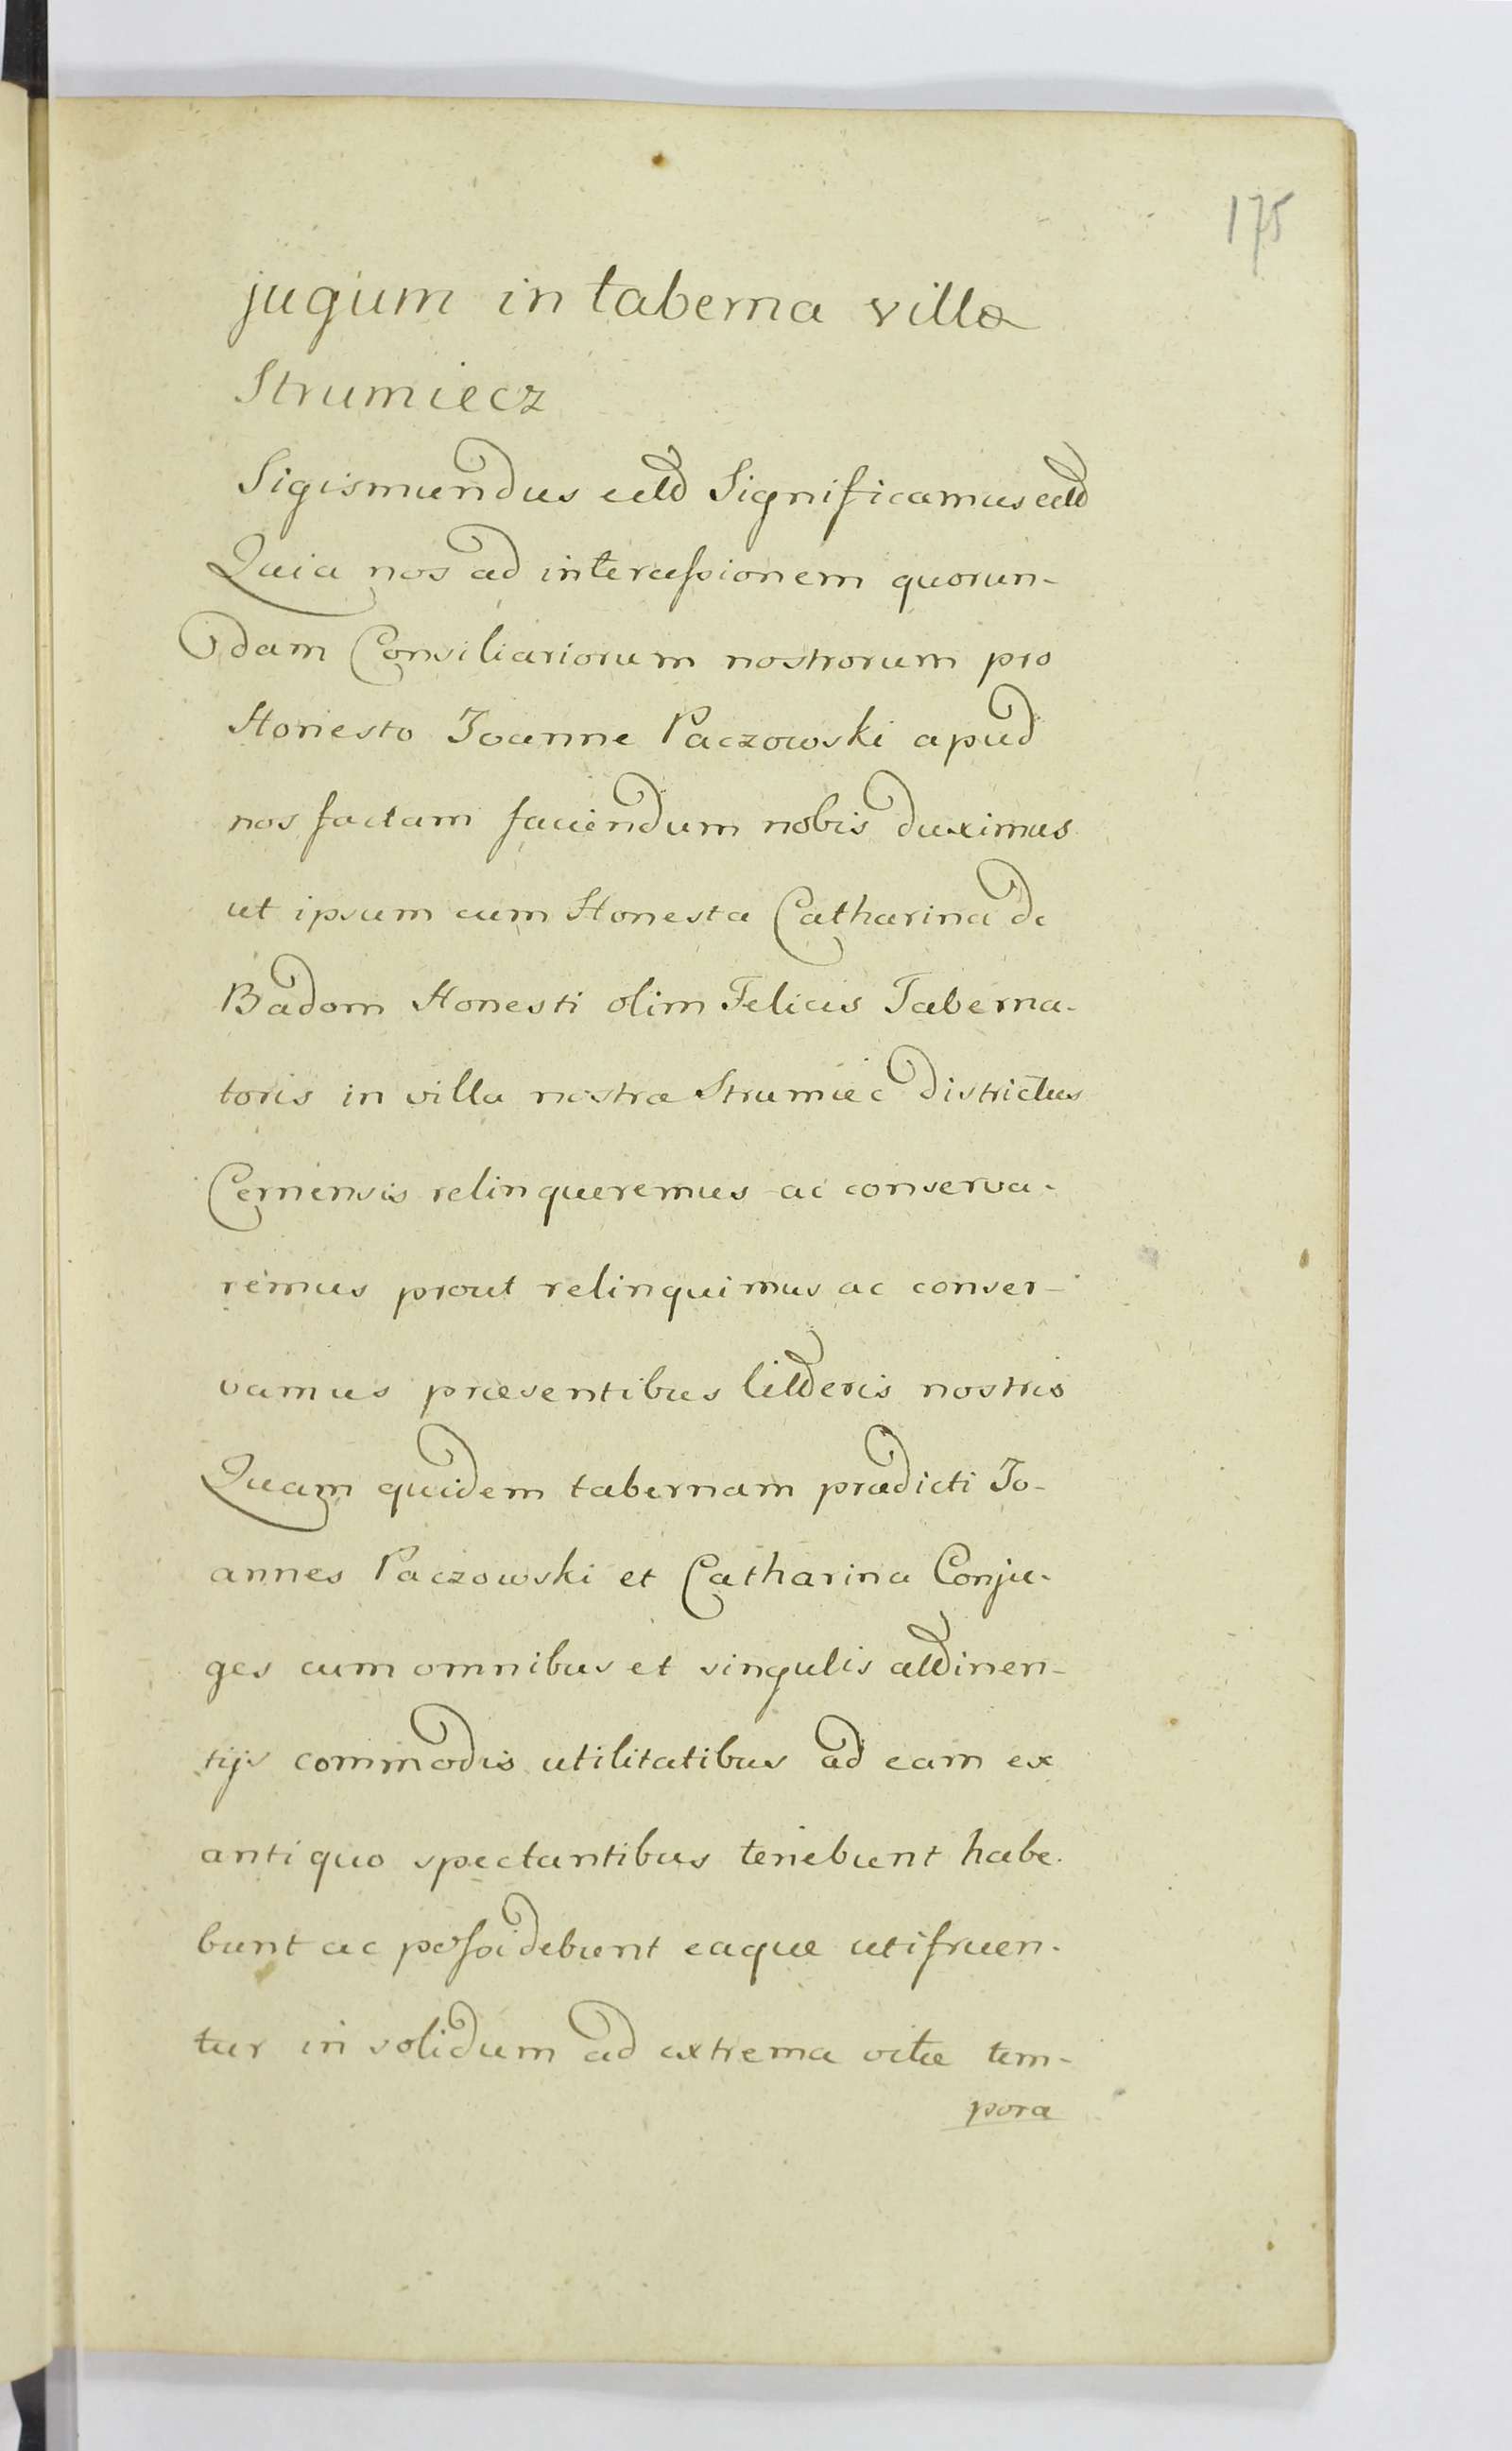 175
jugum in taberna villæ
Strumiecz
Sigismundus ettd Significamus ettd
Quia nos ad intercessionem quorun-
dam Consiliariorum nostrorum pro
Honesto Joanne Paczowski apud
nos factam faciendum nobis duximus
ut ipsum cum Honesta Catharina de
Badom Honesti olim Felicis Taberna-
toris in villa nostra Strumiec districtus
Cernensis relinqueremus ac conserva-
remus prout relinquimus ac conser-
vamus præsentibus litteris nostris
Quam quidem tabernam prædicti Jo-
annes Paczowski et Catharina Conju-
ges cum omnibus et singulis attinen-
tijs commodis utilitatibus ad eam ex
antiquo spectantibus tenebunt habe-
bunt ac possidebunt eaque utifruen-
tur in solidum ad extrema vitæ tem-
pora